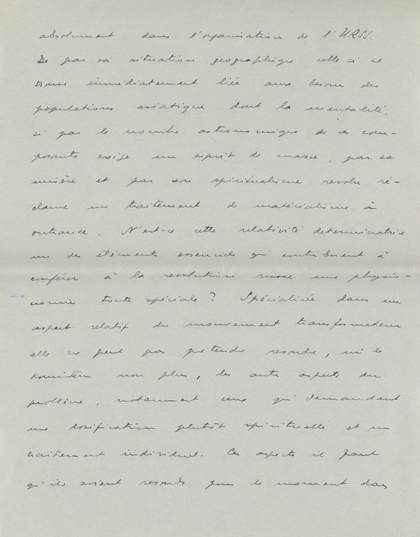 absolument dans l'organisation de l'URSS.
De par sa situation geographique celle-ci se
trouve immediatement liée aux besoins des
populations asiatiques dont la mentalité,
si par le nombre astronomique de ses com-
posants exige un esprit de masse, par sa
misère et par son spiritualisme revolu ré-
clame un traitement de matérialisme à
outrance. N'est-ce cette relativité determinatrice
un des éléments essenciels qui contribuent à
conférer à la revolution russe une physio-
nomie toute spéciale? Spécialisée dans un
aspect relatif du mouvement transformateur
elle ne peut pas pretendre resoudre, ni le
Komintern non plus, les autres aspects du
problème, notamment ceux qui demandent
une dosification plutôt spirituelle et un
traitement individuel. Ces aspects il faut
qu'ils soient resolus pour le moment dans